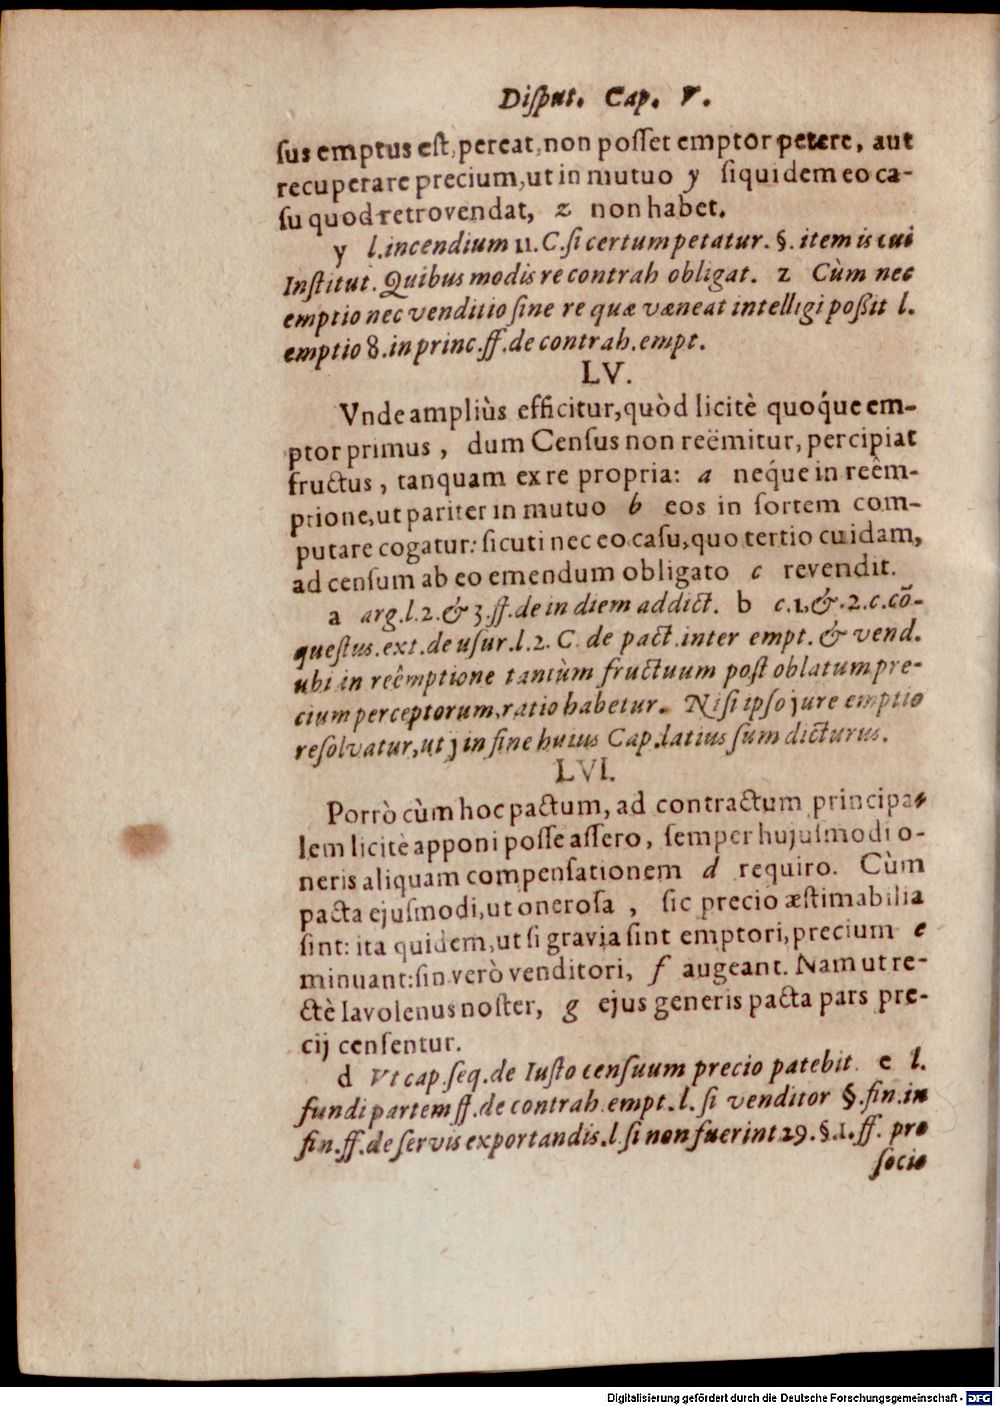 Disput. Cap. V.
sus emptus est, pereat, non posset emptor petere, aut
recuperare precium, ut in mutuo y siquidem eo ca-
su quod retrovendat, z non habet.
y l. incendium 11. C. si certum petatur. §. item is cui
Institut. Quibus modis re contrah obligat. z Cùm nec
emptio nec venditio sine re quæ væneat intelligi poßit l.
emptio 8. in princ. ff. de contrah. empt.
LV.
Vnde ampliùs efficitur, quòd licitè quoq́ue em-
ptor primus, dum Census non reëmitur, percipiat
fructus, tanquam ex re propria: a neq́ue in reêm-
ptione, ut pariter in mutuo b eos in sortem com-
putare cogatur: sicuti nec eo casu, quo tertio cuidam,
ad censum ab eo emendum obligato c revendit.
a arg. l. 2. & 3. ff. de in diem addict. b c. 1. &. 2. c. cō-
questus. ext. de usur. l. 2. C. de pact. inter empt. & vend.
ubi in reêmptione tantùm fructuum post oblatum pre-
cium perceptorum, ratio habetur. Nisi ipso jure emptio
resolvatur, ut j in fine huius Cap. latius sum dicturus.
LVI.
Porrò cùm hoc pactum, ad contractum principa-
lem licitè apponi posse assero, semper hujusmodi o-
neris aliquam compensationem d requiro. Cùm
pacta ejusmodi, ut onerosa, sic precio æstimabilia
sint: ita quidem, ut si gravia sint emptori, precium e
minuant: sin verò venditori, f augeant. Nam ut re-
ctè Iavolenus noster, g ejus generis pacta pars pre-
cij censentur.
d Vt cap. seq. de Iusto censuum precio patebit. e l.
fundi partem ff. de contrah. empt. l. si venditor §. fin. in
fin. ff. de servis exportandis. l. si non fuerint 29. §. 1. ff. pro
socio
Digitalisierung gefördert durch die Deutsche Forschungsgemeinschaft - DFG